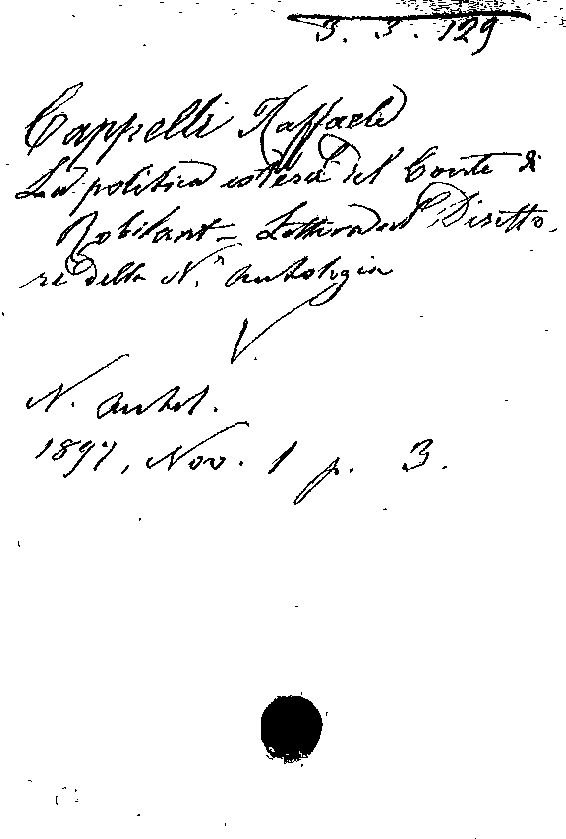 3. 3. 129
Cappelli Raffaele
La politica estera del Conte di
Robilant = Lettera al Diretto.
re della N.ª Antologia
V
N. Antol.
1897, Nov. 1 p. 3.